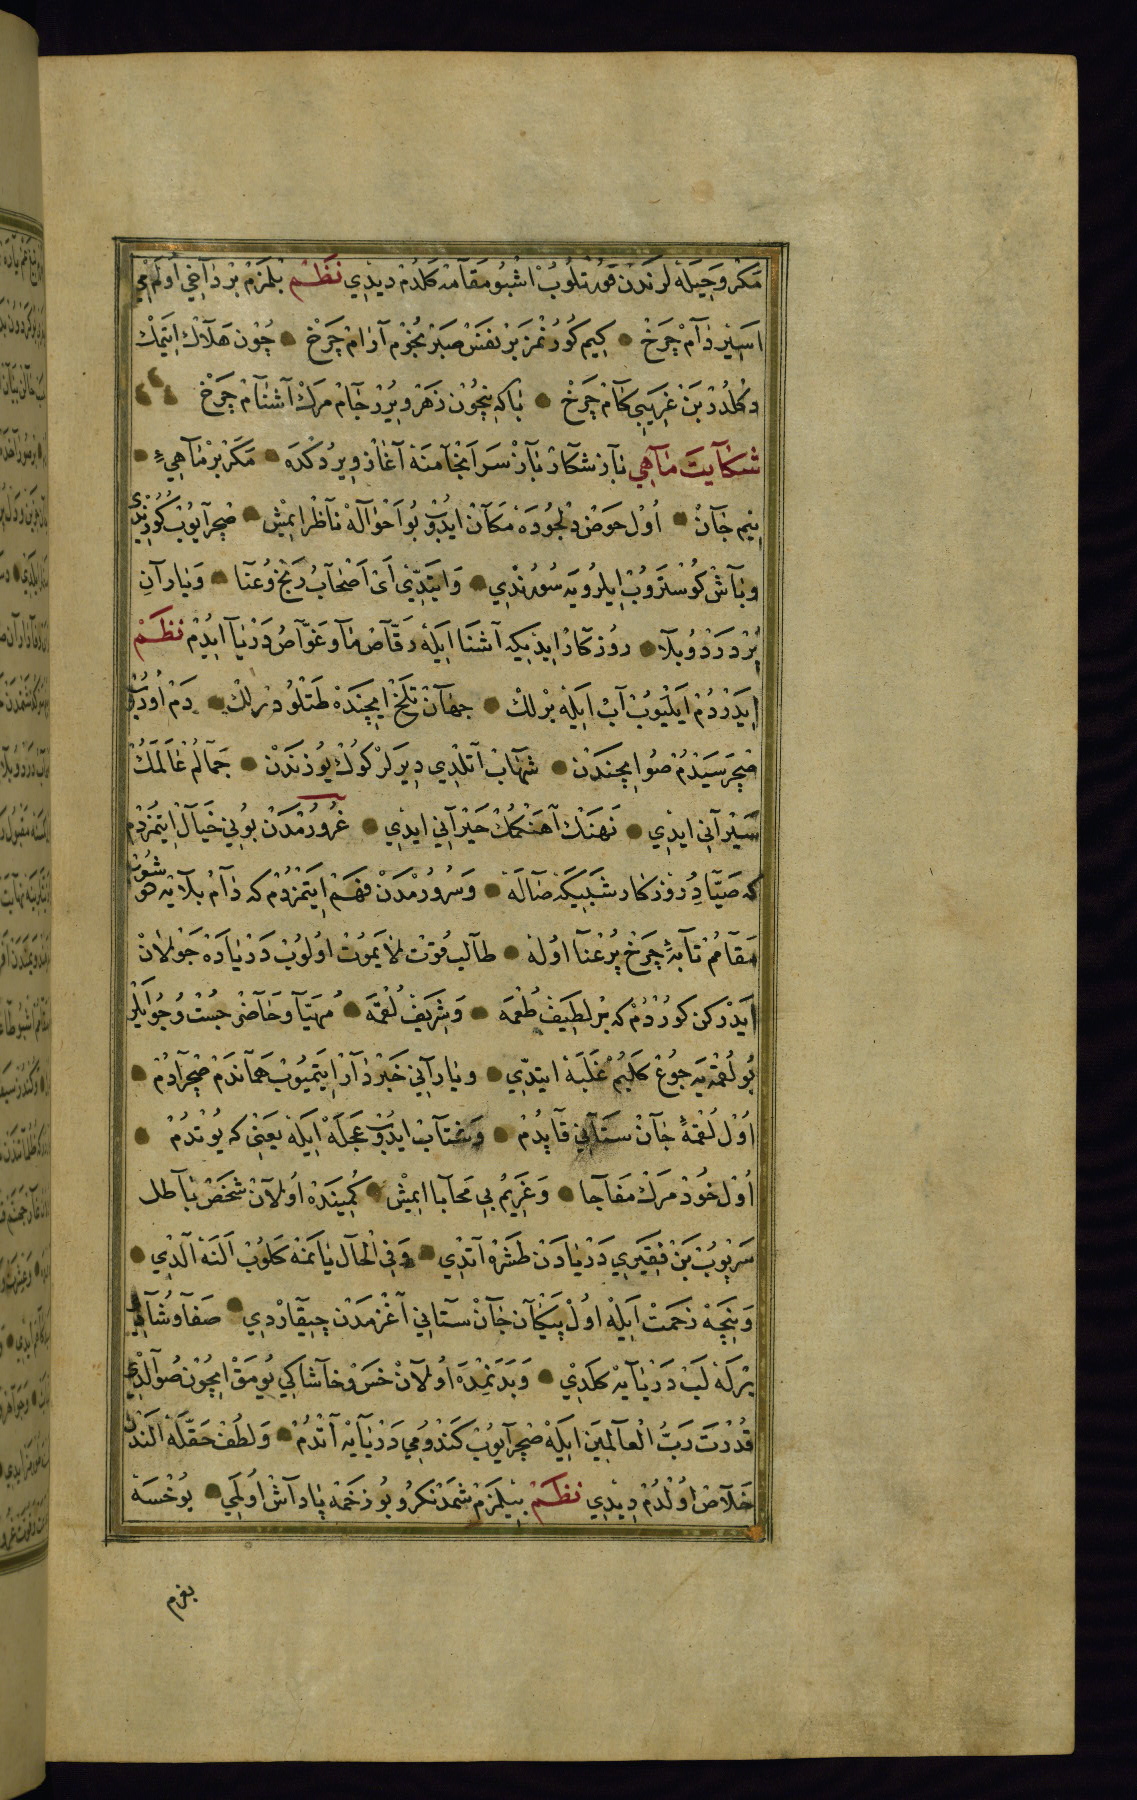 مكر و حيله لرندن قورتلوب اشبو مقامه كلدم ديدي نظم بلمزم بر داخي اولمي
اسير دام چرخ كيم كورنمز بر نفس صبر بخزم آرام چرخ چون هلاك ايتمك
دكلدر بن غريبي كام چرخ باكه نيچون زهر ويرر جام مرك آشنام چرخ
شكايت ماهي باز شكار باز سرانجامنه آغاز ويردكده مكر بر ماهيء
بيم جان اول حوض دلجوده مكان ايدوب بو احواله ناظر ايمش صچرايوب كوزندي
و باش كوستروب ايلرويه سورندي و ايتدي اى اصحاب رنج و عنا و ياران
پر درد و بلا روزكار ايديكه آشنا ايله رقاص ما و غواص دريا ايدم نظم
ايدردم ايليوب آب ايله برلك جهان تلخ ايچنده طتلو دزلك دم اودب
صچرسيدم صو ايچندن شهاب آتلدي ديرلر كوك يوزندن جمالم عالمك
سيراني ايدي نهنك آهنكمك حيراني ايدي غرورمدن بويي خيال ايتمزدم
كه صياد روزكار شبيكه صاله و سرورمدن فهم ايتمزدم كه دام بلايه هو شوت
مقامم تابۀ چرخ پرعنا اوله طالب قوت لا يموت اولوب درياده جولان
ايدركن كوردم كه بر لطيف طعمه و شريف لقمه مهيا و حاضر جست و جو ايلر
بو لقمه يه جوع كلبم غلبه ايتدي و ياراني خبردار ايتميوب هماندم صچرادم
اول لقمۀ جان ستاني قاپدم و شتاب ايدوب عجله ايله يعني كه يوتدم
اول خود مرك مفاجا و غريم بي محابا ايمش كمينده اولان شخص باطل
سرپوب بن فقيري دريادن طشره آتدي و في الحال يانمه كلوب النه الدي
و نيچه زحمت ايله اول پيكان جان ستاني آغزمدن چيقاردي صفا و شاني
بركه لب دريايه كلدي و بدنمده اولان خس و خاشاكي يومق ايچون صوالدي
قدرت رب العالمين ايله صچرايوب كندومي دريايه آتدم و لطف حقله الندن
خلاص اولدم ديدي نظم بيلمزم شمدنكرو بو زخمه پاداش اولمي يوخسه
بغرم